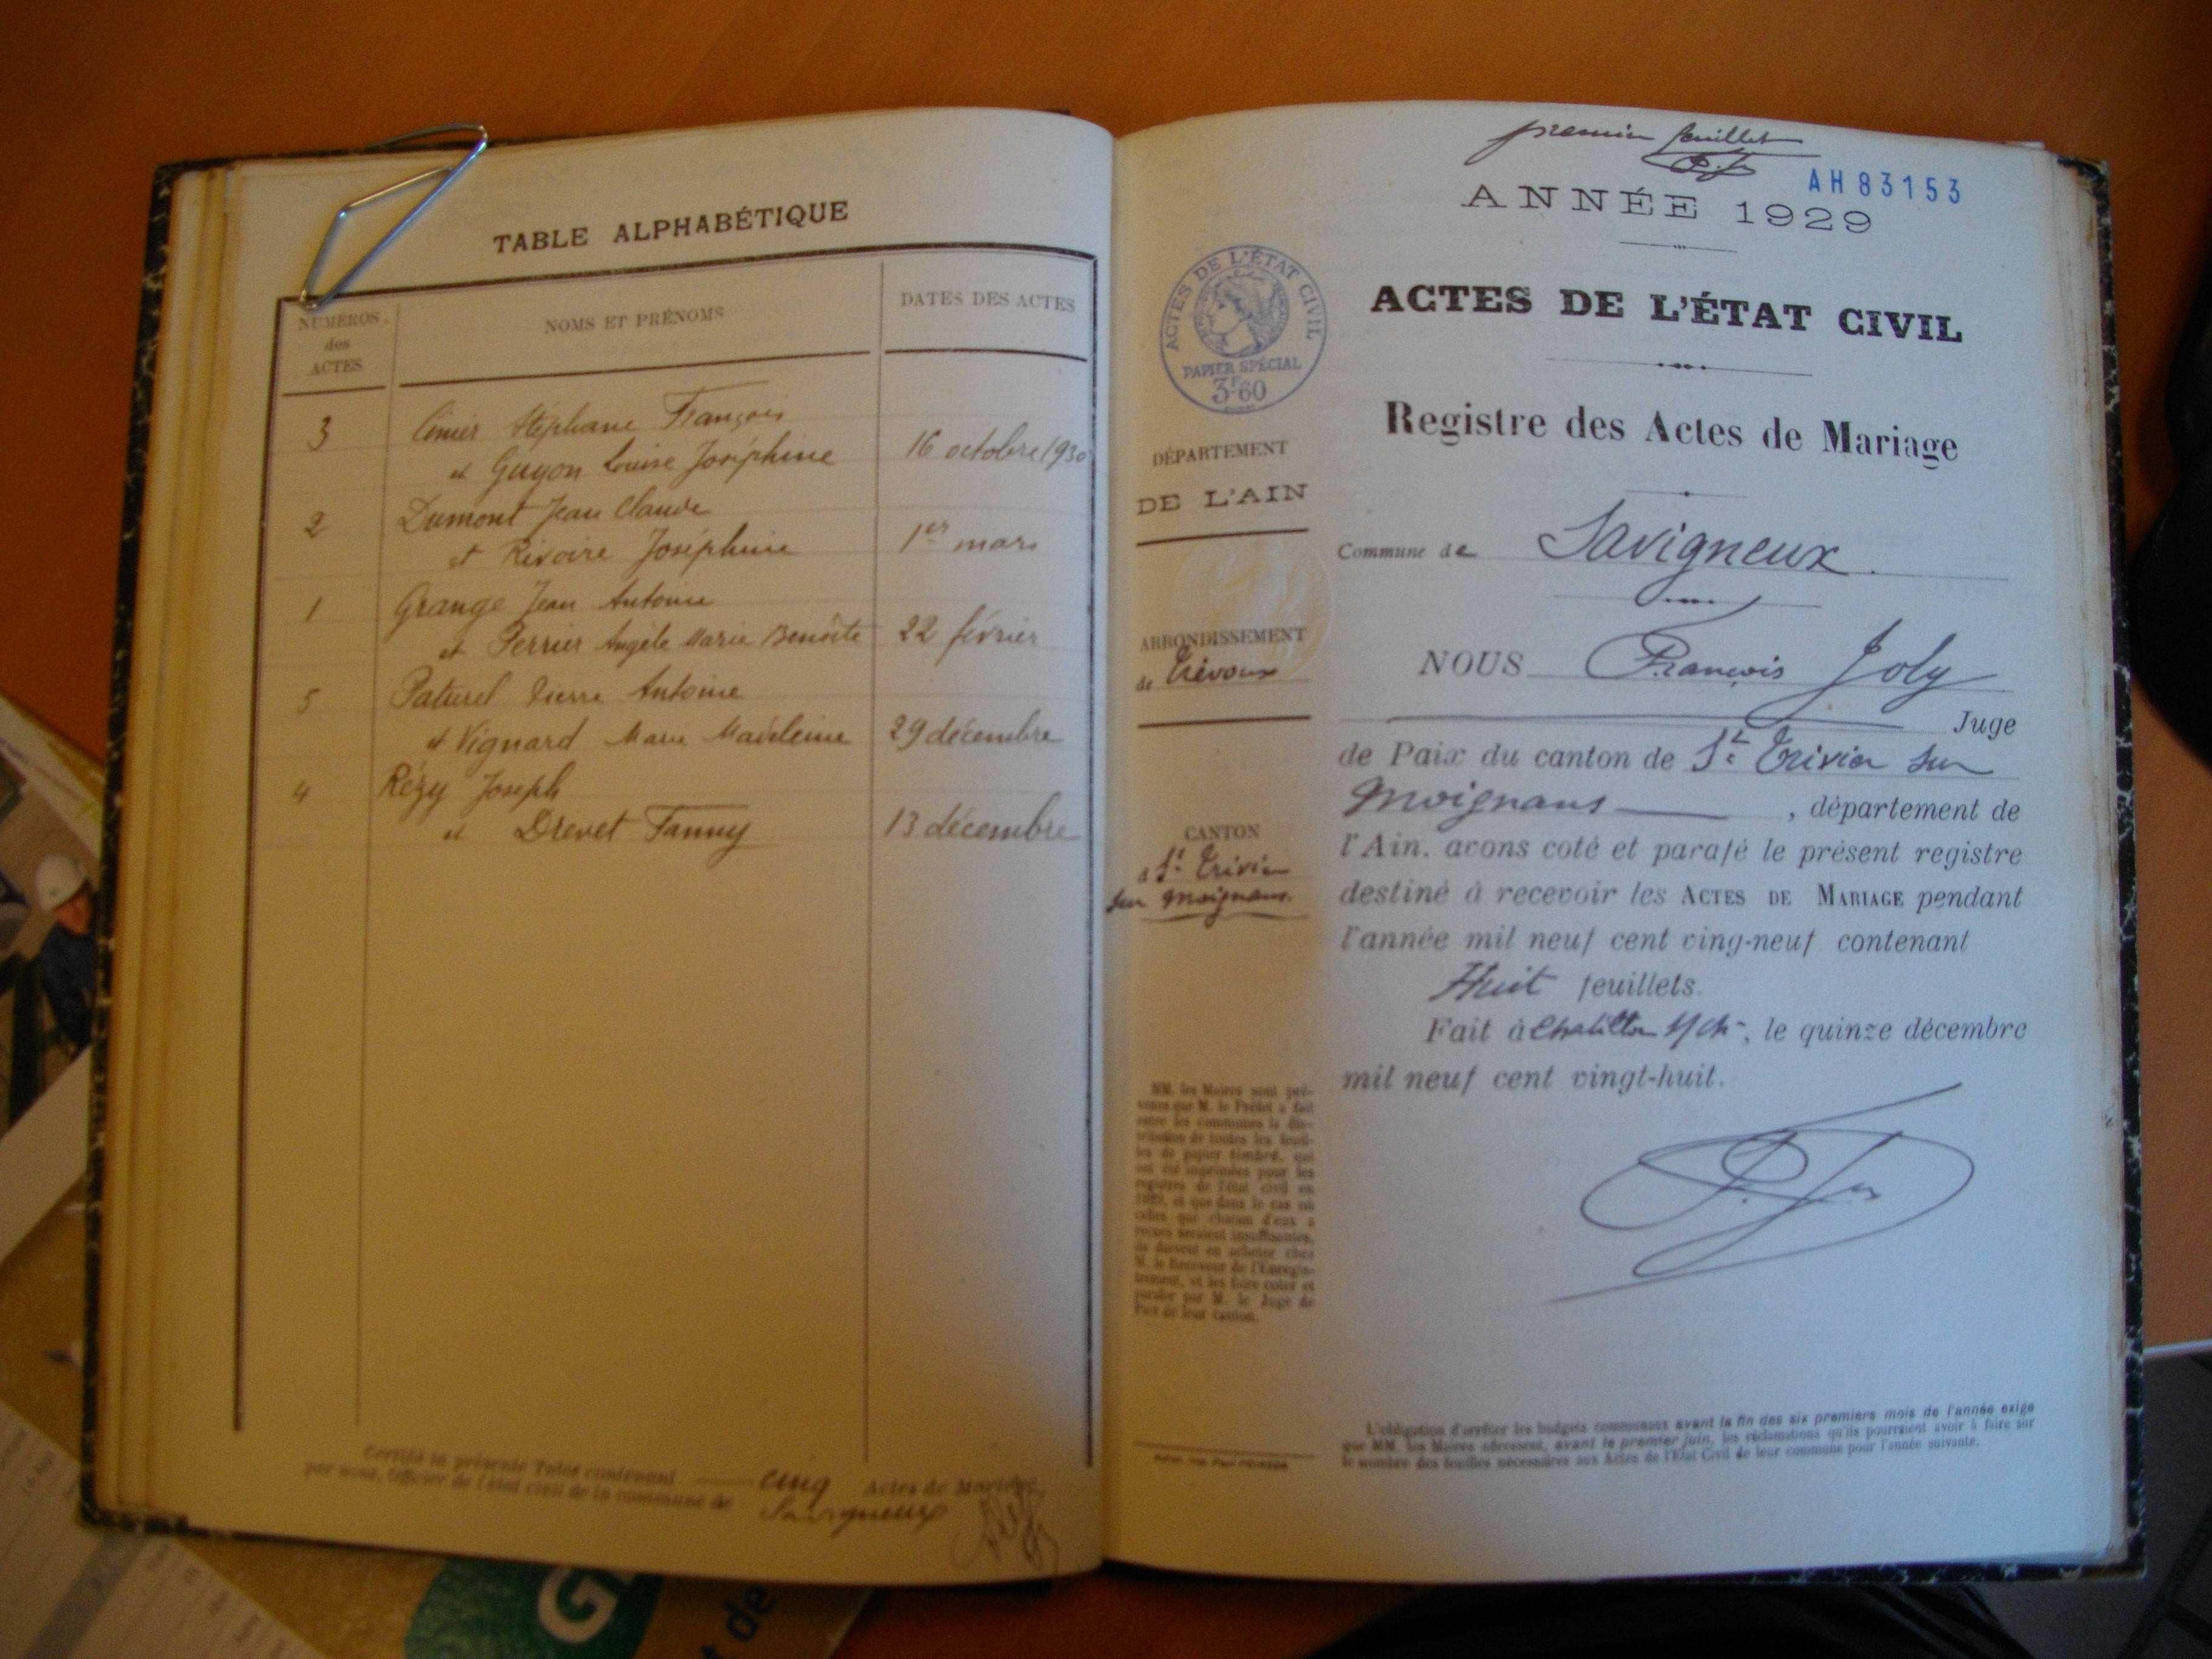 TABLE ALPHABÉTIQUE
NUMÉROS des ACTES
NOMS ET PRÉNOMS
DATES DES ACTES
3 Cinier Stéphane François
et Guyon Louise Joséphine 16 octobre 1930
2 Dumont Jean Claude
et Rivoire Joséphine 1er mars
1 Grange Jean Antoine
et Perrier Angèle Marie Benoîte 22 février
5 Paturel Pierre Antoine
et Vignard Marie Madeleine 29 décembre
4 Rézy Joseph
et Drevet Fanny 13 décembre
Certifié la présente Table contenant cinq Actes de Mariage
par nous, Officier de l'état civil de la commune de Savigneux
premier feuillet
AH 83153
ANNÉE 1929
ACTES DE L'ÉTAT CIVIL
PAPIER SPÉCIAL
3F60
ACTES DE L'ÉTAT CIVIL
Registre des Actes de Mariage
DÉPARTEMENT
DE L'AIN
Commune de Savigneux
ARRONDISSEMENT
de Trévoux
NOUS François Joly
Juge
de Paix du canton de St Trivier sur
Moignans, département de
CANTON
d St Trivier
sur Moignans.
l'Ain, avons coté et parafé le présent registre
destiné à recevoir les ACTES DE MARIAGE pendant
l'année mil neuf cent ving-neuf contenant
Huit feuillets.
Fait à Chatillon s/ch, le quinze décembre
mil neuf cent vingt-huit.
MM. les Maires sont pré-
venus que M. le Préfet a fait
entre les communes la dis-
tribution de toutes les feuil-
les de papier timbré, qui
ont été imprimées pour les
registres de l'état civil en
1929, et que dans le cas où
celles que chacun d'eux a
reçues seraient insuffisantes,
ils doivent en acheter chez
M. le Receveur de l'Enregis-
trement, et les faire coter et
parafer par M. le Juge de
Paix de leur canton.
L'obligation d'arrêter les budgets communaux avant la fin des six premiers mois de l'année exige
que MM. les Maires adressent, avant le premier juin, les réclamations qu'ils pourraient avoir à faire sur
le nombre des feuilles nécessaires aux Actes de l'État Civil de leur commune pour l'année suivante.